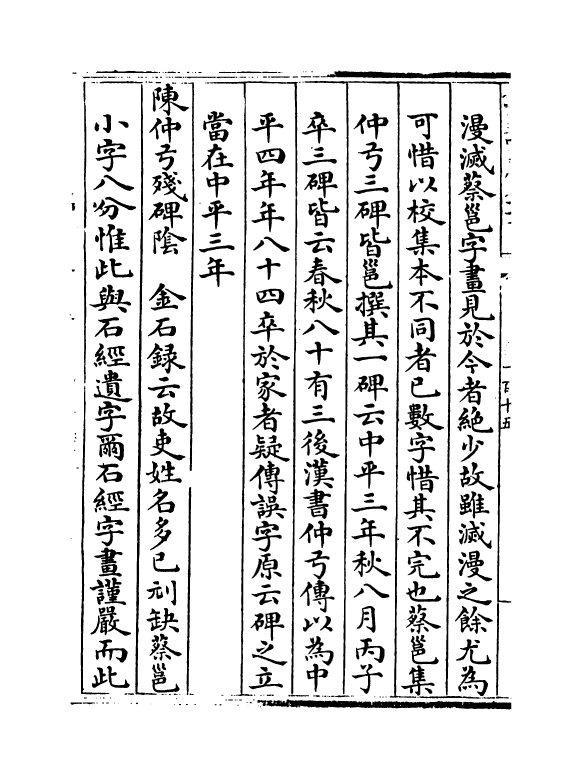 漫滅蔡邕字畫見於今者絶少故雖滅漫之餘尤為
可惜以校集本不同者已數字惜其不完也蔡邕集
仲弓三碑皆邕撰其一碑云中平三年秋八月丙子
卒三碑皆云春秋八十有三後漢書仲弓傳以為中
平四年年八十四卒於家者疑傳誤字原云碑之立
當在中平三年
陳仲弓殘碑陰　金石録云故吏姓名多已刓缺蔡邕
小字八分惟此與石經遺字爾石經字畫謹嚴而此